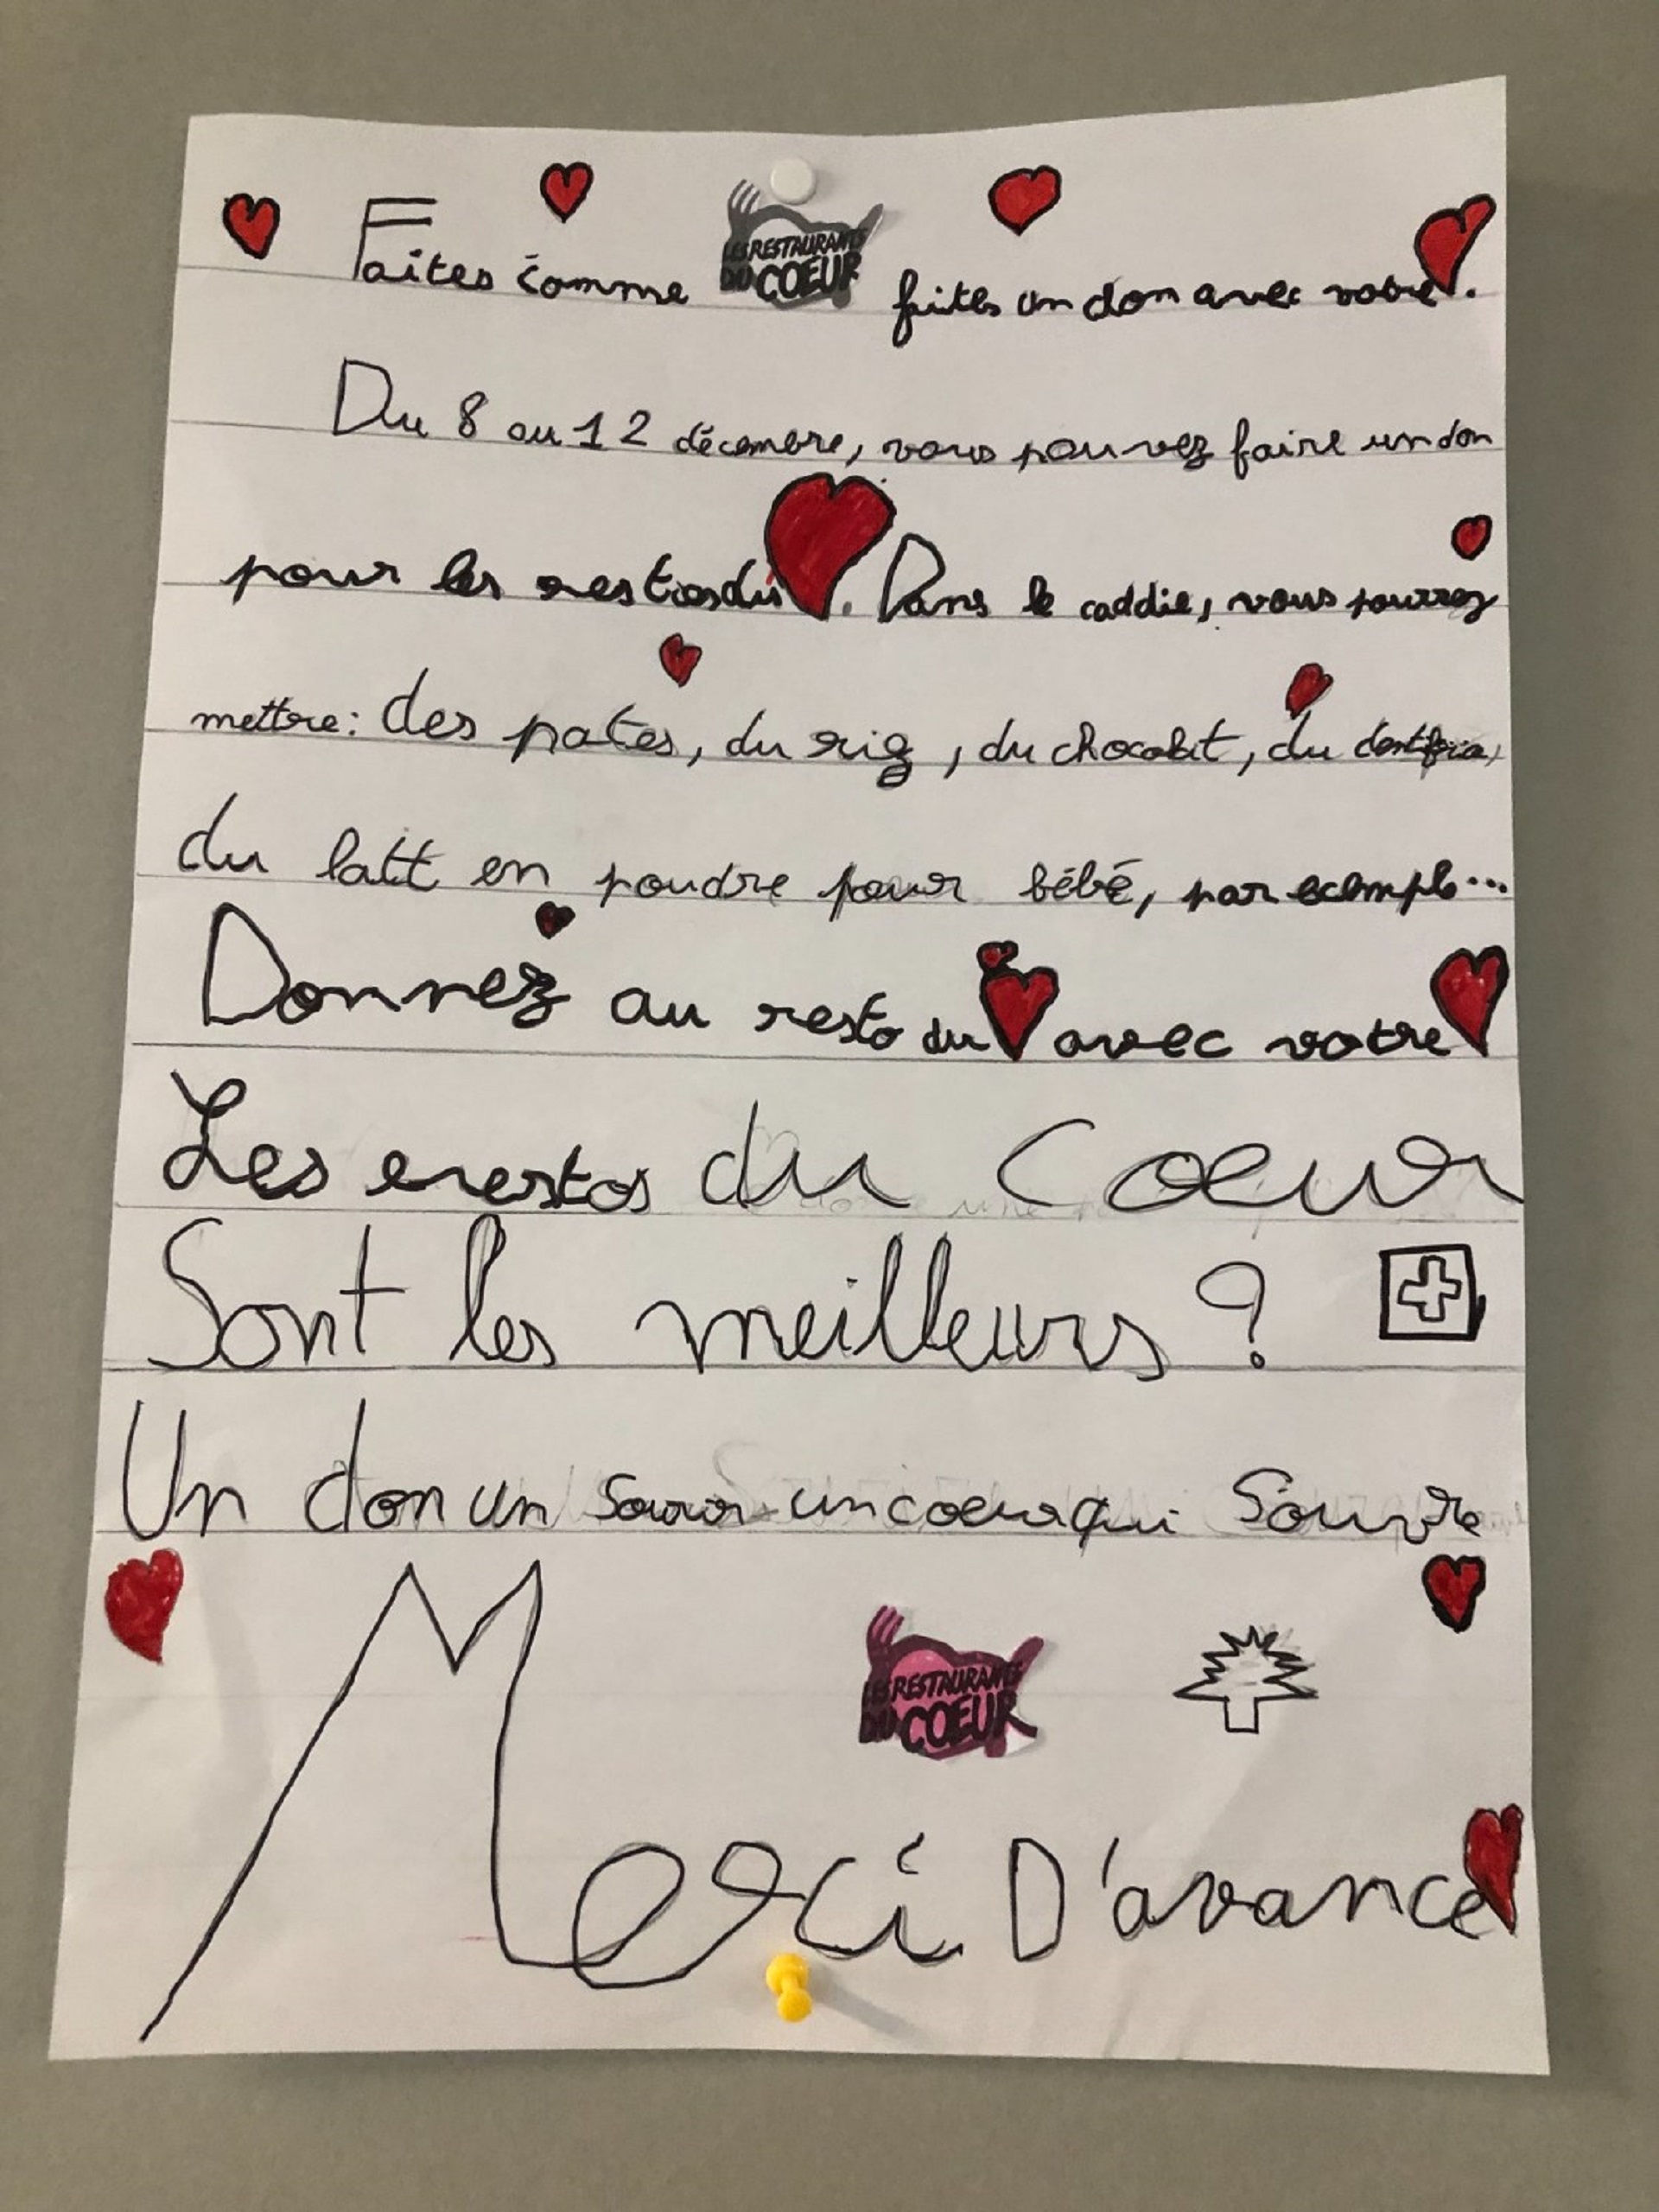 Faites comme LES RESTAURANTS DU COEUR faites un don avec votre ♥.
Du 8 au 12 décembre, vous pouvez faire un don
pour les restos du ♥. Dans le caddie, vous pourrez
mettre: des pates, du riz, du chocolat, du dentifrice,
du lait en poudre pour bébé, par exemple...
Donnez au resto du ♥ avec votre ♥
Les restos du Coeur
Sont les meilleurs ?
Un don un sourir un coeur qui s'ouvre
LES RESTAURANTS DU COEUR
Merci D'avance